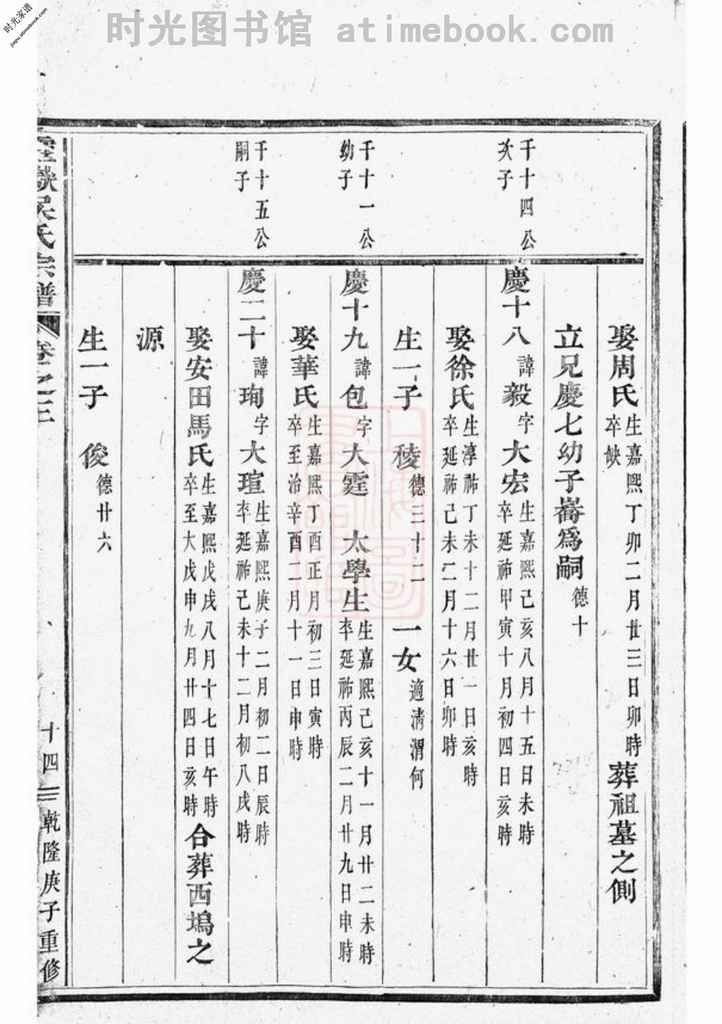 时光图书馆 atimebook.com
时光家谱
娶周氏 生嘉熙丁卯二月廿三日卯時 卒缺 葬祖墓之側
立兄慶七幼子嵛為嗣 德十
千十四公 次子
慶十八 諱毅 字大宏 生嘉熙己亥八月十五日未時 卒延祐甲寅十月初四日亥時
娶徐氏 生淳祐丁未十二月廿一日亥時 卒延祐己未二月十六日卯時
生一子 稜 德三十二 一女 適清渭何
千十一公 幼子
慶十九 諱包 字大霆 太學生 生嘉熙己亥十一月廿二未時 卒延祐丙辰二月廿九日申時
娶華氏 生嘉熙丁酉正月初三日寅時 卒至治辛酉二月十一日申時
千十五公 嗣子
慶二十 諱珣 字大瑄 生嘉熙庚子二月初二日辰時 卒延祐己未十二月初八戌時
娶安田馬氏 生嘉熙戊戌八月十七日午時 卒至大戊申九月廿四日亥時 合葬西塢之
源
生一子 俊 德廿六
吳氏宗譜 卷之三 十四 乾隆庚子重修